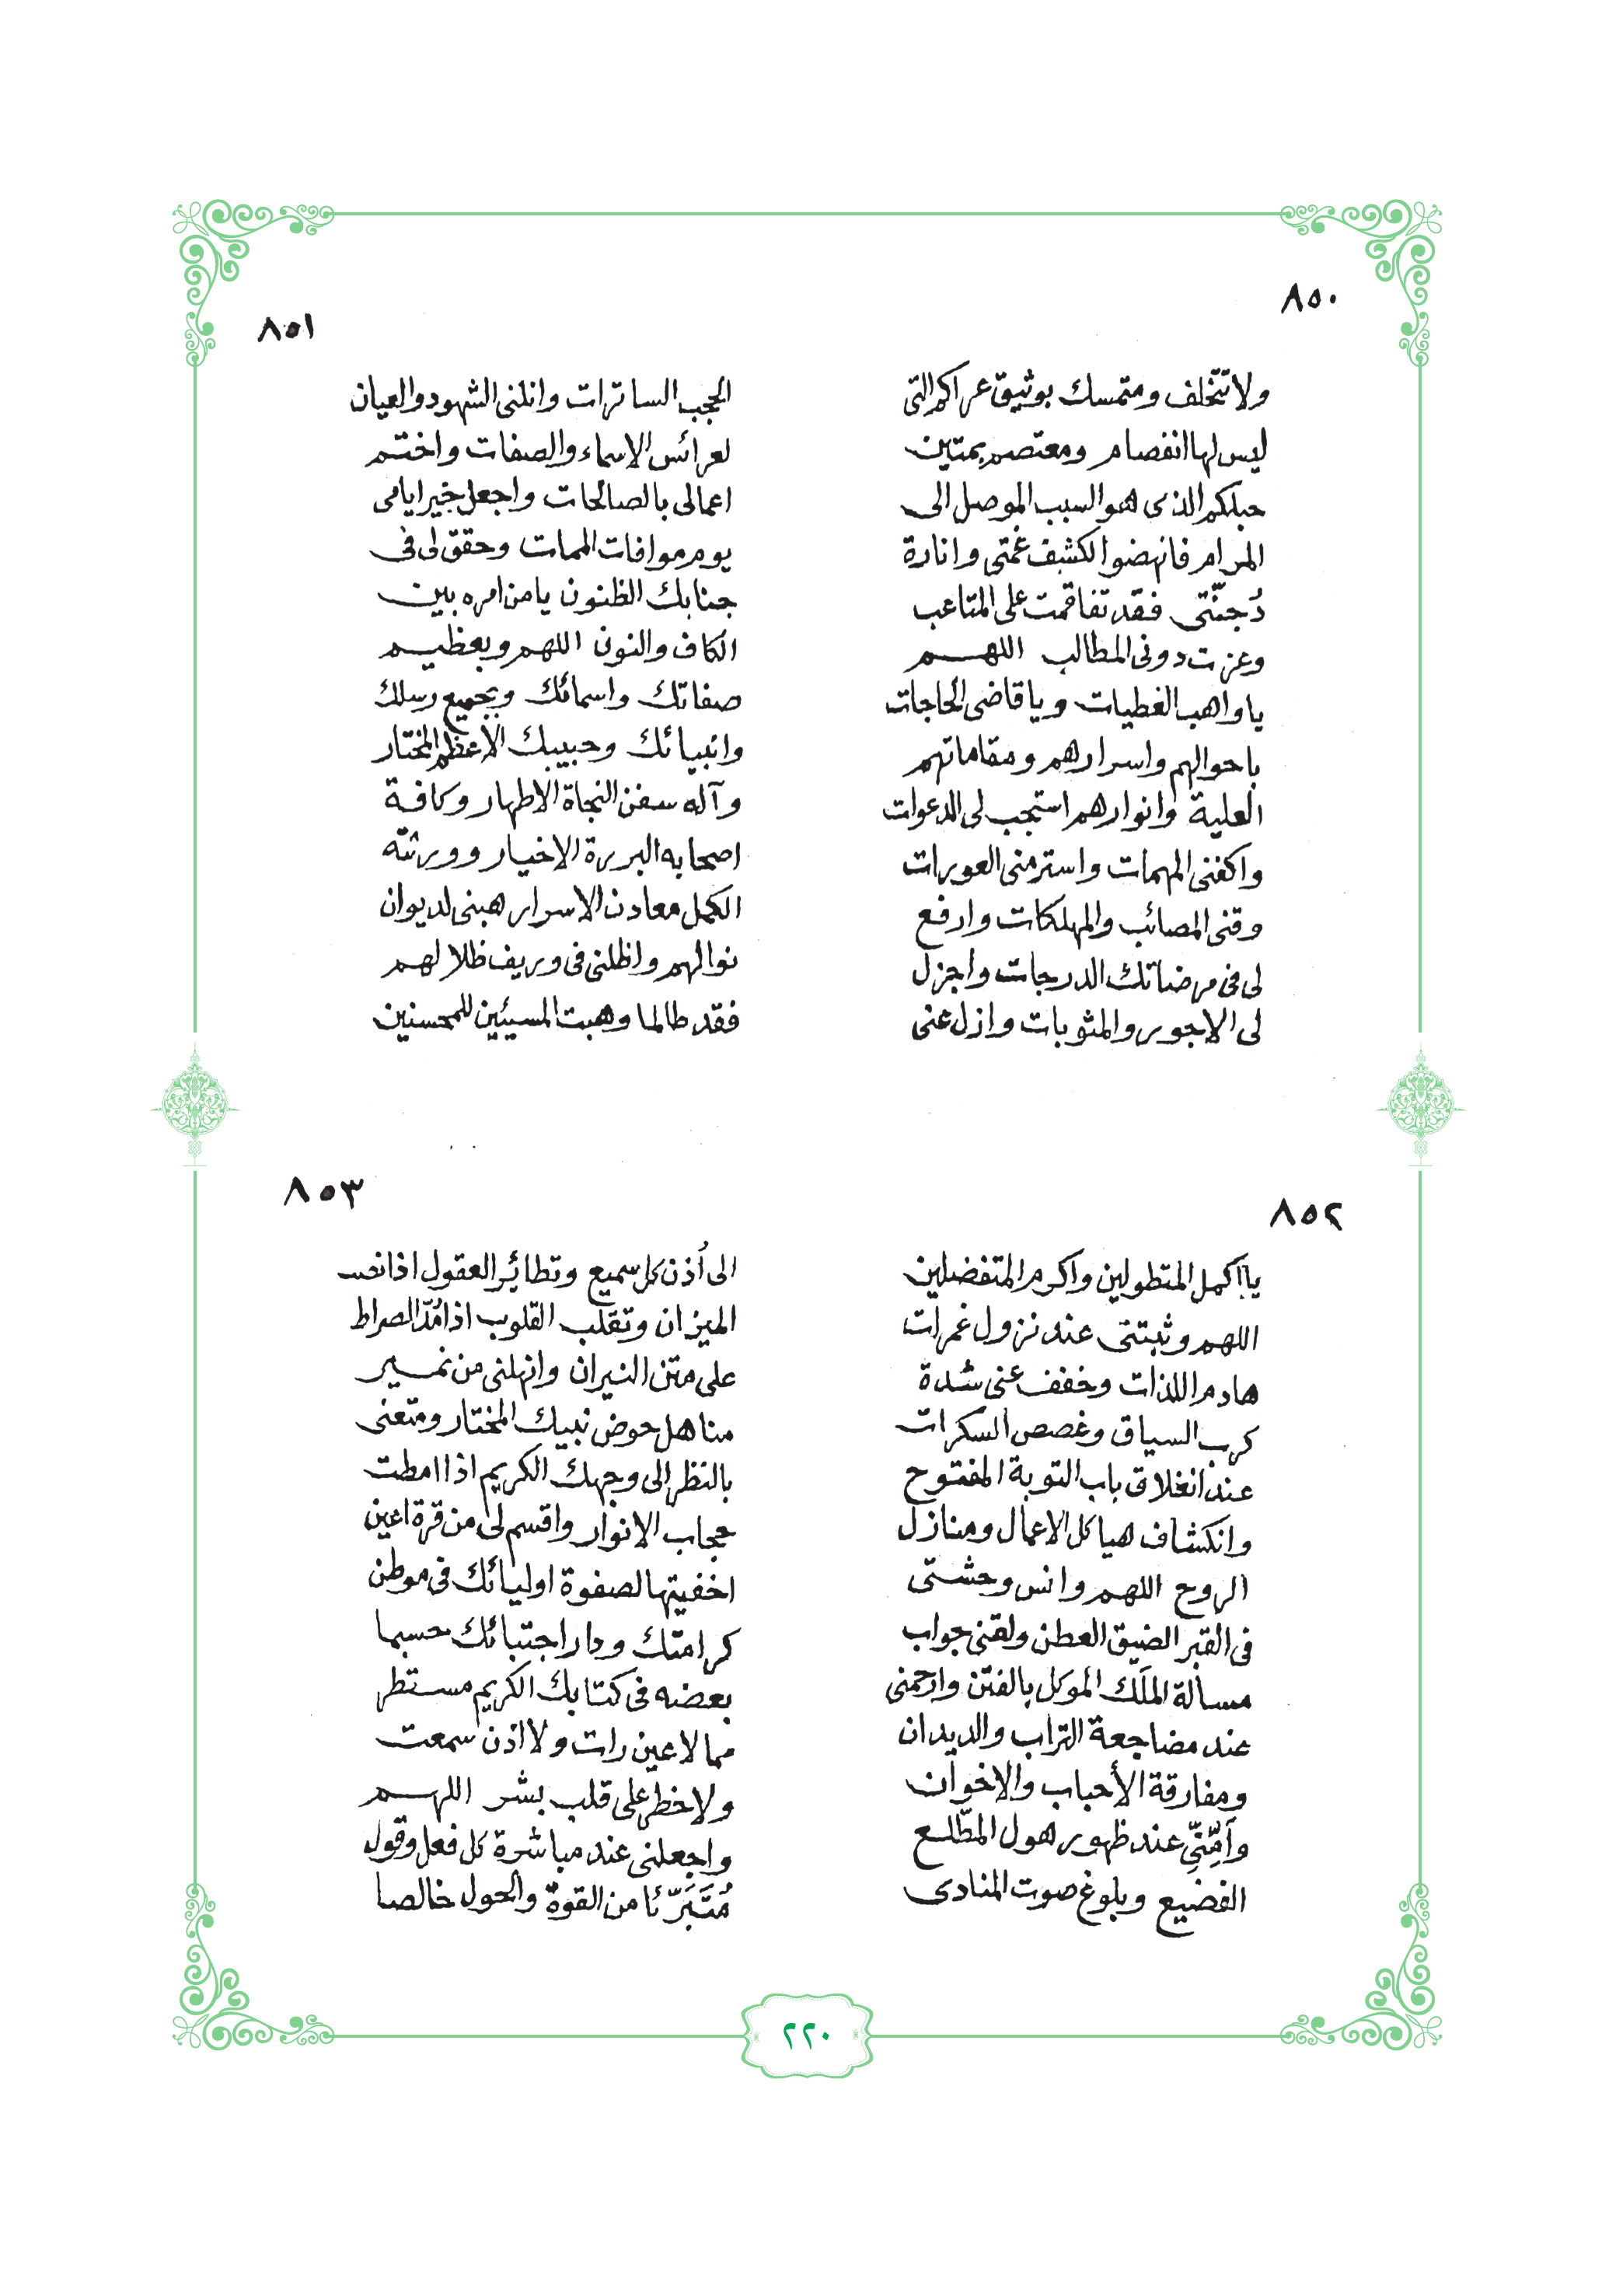 ٨٥٠
ولا تتخلف ومتمسك بوثيق عراكم التى
ليس لها انفصام ومعتصم بمتين
حبلكم الذى هو السبب الموصل الى
المرام فانهضوا لكشف غمتى وانارة
دُجنّتى فقد تفاقمت على المتاعب
وعزت دونى المطالب اللهم
يا واهب العطيات ويا قاضى الحاجات
باحوالهم واسرارهم ومقاماتهم
العلية وانوارهم استجب لى الدعوات
واكفنى المهمات واستر منى العورات
وقنى المصائب والمهلكات وارفع
لى فى مرضاتك الدرجات واجزل
لى الاجور والمثوبات وازل عنى
٨٥١
الحجب الساترات وانلنى الشهود والعيان
لعرائس الاسماء والصفات واختم
اعمالى بالصالحات واجعل خير ايامى
يوم موافات الممات وحقق لى فى
جنابك الظنون يا من امره بين
الكاف والنون اللهم وبعظيم
صفاتك واسمائك وبجميع رسلك
وانبيائك وحبيبك الأعظم المختار
وآله سفن النجاة الاطهار وكافة
اصحابه البررة الاخيار وورثته
الكمل معادن الاسرار هبنى لديوان
نوالهم واظلنى فى وريف ظلالهم
فقد طالما وهبت المسيئين للمحسنين
٨٥٢
يا اكمل المتطولين واكرم المتفضلين
اللهم وثبتنى عند نزول غمرات
هادم اللذات وخفف عنى شدة
كرب السياق وغصص السكرات
عند انغلاق باب التوبة المفتوح
وانكشاف هياكل الاعمال ومنازل
الروح اللهم وانس وحشتى
فى القبر الضيق العطن ولقنى جواب
مسألة الملَك الموكل بالفتن وارحمنى
عند مضاجعة التراب والديدان
ومفارقة الأحباب والاخوان
وآمِنِّي عند ظهور هول المطّلع
الفضيع وبلوغ صوت المنادى
٨٥٣
الى أذن كل سميع وتطائير العقول اذا نصب
الميزان وتقلب القلوب اذا مُدّ الصراط
على متن النيران وانهلنى من نمير
مناهل حوض نبيك المختار ومتعنى
بالنظر الى وجهك الكريم اذا امطت
حجاب الانوار واقسم لى من قرة اعين
اخفيتها لصفوة اوليائك فى موطن
كرامتك ودار اجتبائك حسبما
بعضه فى كتابك الكريم مستطر
مما لا عين رات ولا اذن سمعت
ولا خطر على قلب بشر اللهم
واجعلنى عند مباشرة كل فعل وقول
مُتَبَرّئا من القوة والحول خالصا
٢٢٠